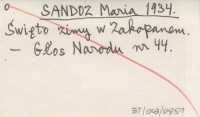 o SANDOZ Maria 1934.
Święto zimy w Zakopanem.
— Głos Narodu nr 44.